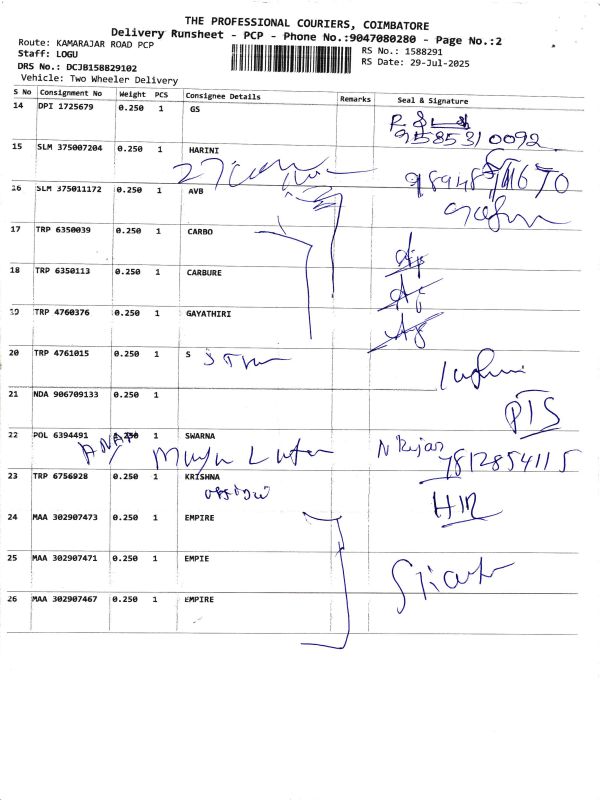 THE PROFESSIONAL COURIERS, COIMBATORE
Delivery Runsheet - PCP - Phone No.:9047080280 - Page No.:2
Route: KAMARAJAR ROAD PCP
Staff: LOGU
DRS No.: DCJB158829102
Vehicle: Two Wheeler Delivery
RS No.: 1588291
RS Date: 29-Jul-2025
S No Consignment No Weight PCS Consignee Details Remarks Seal & Signature
14 DPI 1725679 0.250 1 GS
9585310092
15 SLM 375007204 0.250 1 HARINI
16 SLM 375011172 0.250 1 AVB
17 TRP 6350039 0.250 1 CARBO
18 TRP 6350113 0.250 1 CARBURE
19 TRP 4760376 0.250 1 GAYATHIRI
20 TRP 4761015 0.250 1 S
21 NDA 906709133 0.250 1
PTS
22 POL 6394491 0.250 1 SWARNA
9812854115
23 TRP 6756928 0.250 1 KRISHNA
24 MAA 302907473 0.250 1 EMPIRE
25 MAA 302907471 0.250 1 EMPIE
26 MAA 302907467 0.250 1 EMPIRE